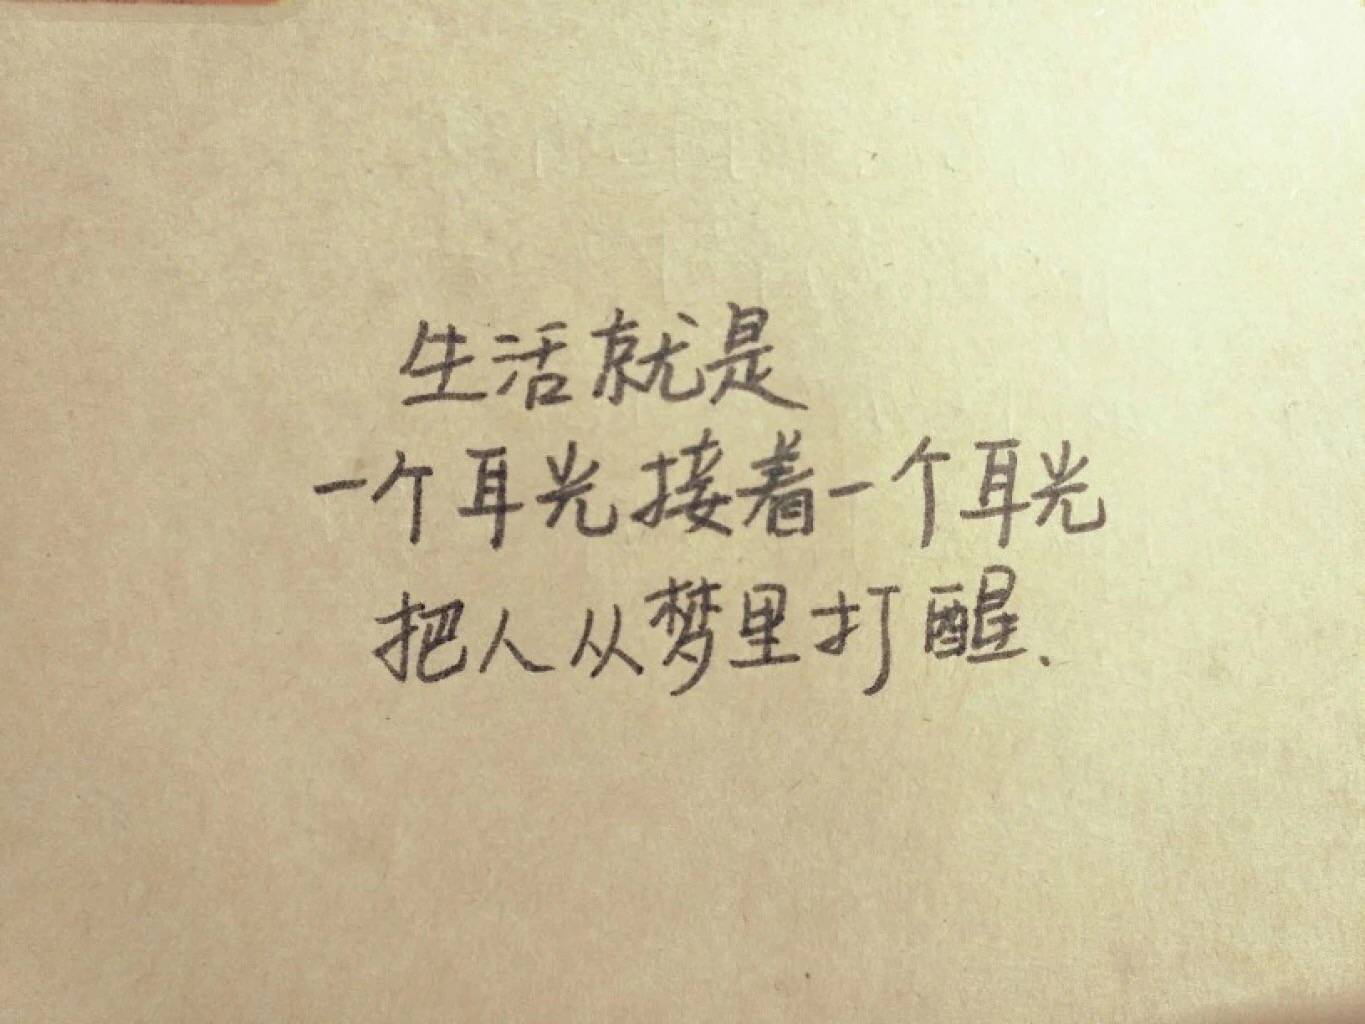 生活就是
一个耳光接着一个耳光
把人从梦里打醒、